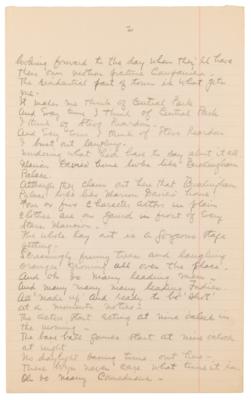 2
looking forward to the day when they'll have
their own motion picture Companies.
The residential part of town is what gets
me.
It makes me think of Central Park
And every time I think of Central Park
I think of Steve Reardon
And every time I think of Steve Reardon
I bust out laughing.
Wonder what he'd have to say about it all
Marion Davies' home looks like Buckingham
Palace.
Although they claim out here that Buckingham
Palace looks like Marion Davies' home!
Four or five character actors in plain
clothes are on guard in front of every
Stars Mansion.
The whole lay out is a gorgeous stage
setting.
Seemingly prming trees and laughing
oranges growing all over the place.
And oh so many leading men.
And many many many leading ladies
All made up and ready to be "shot"
at a moments notice!
The actors start acting at nine oclock in
the morning.
The base ball games start at nine oclock
at night.
No daylight saving time out here.
These boys never care what time it is.
Oh so many Comedians.